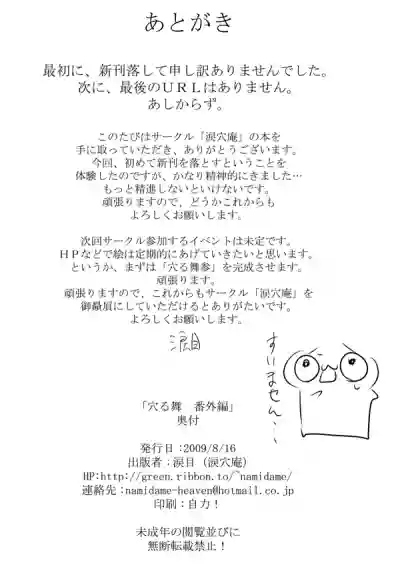 あとがき
最初に、新刊落して申し訳ありませんでした。
次に、最後のＵＲＬはありません。
あしからず。
このたびはサークル「涙穴庵」の本を
手に取っていただき、ありがとうございます。
今回、初めて新刊を落とすということを
体験したのですが、かなり精神的にきました…
もっと精進しないといけないです。
頑張りますので、どうかこれからも
よろしくお願いします。
次回サークル参加するイベントは未定です。
ＨＰなどで絵は定期的にあげていきたいと思います。
というか、まずは「穴る舞参」を完成させます。
頑張ります。
頑張りますので、これからもサークル「涙穴庵」を
御贔屓にしていただけるとありがたいです。
よろしくお願いします。
涙目
すいません…
「穴る舞　番外編」
奥付
発行日:2009/8/16
出版者:涙目（涙穴庵）
HP:http://green.ribbon.to/~namidame/
連絡先:namidame-heaven@hotmail.co.jp
印刷:自力！
未成年の閲覧並びに
無断転載禁止！